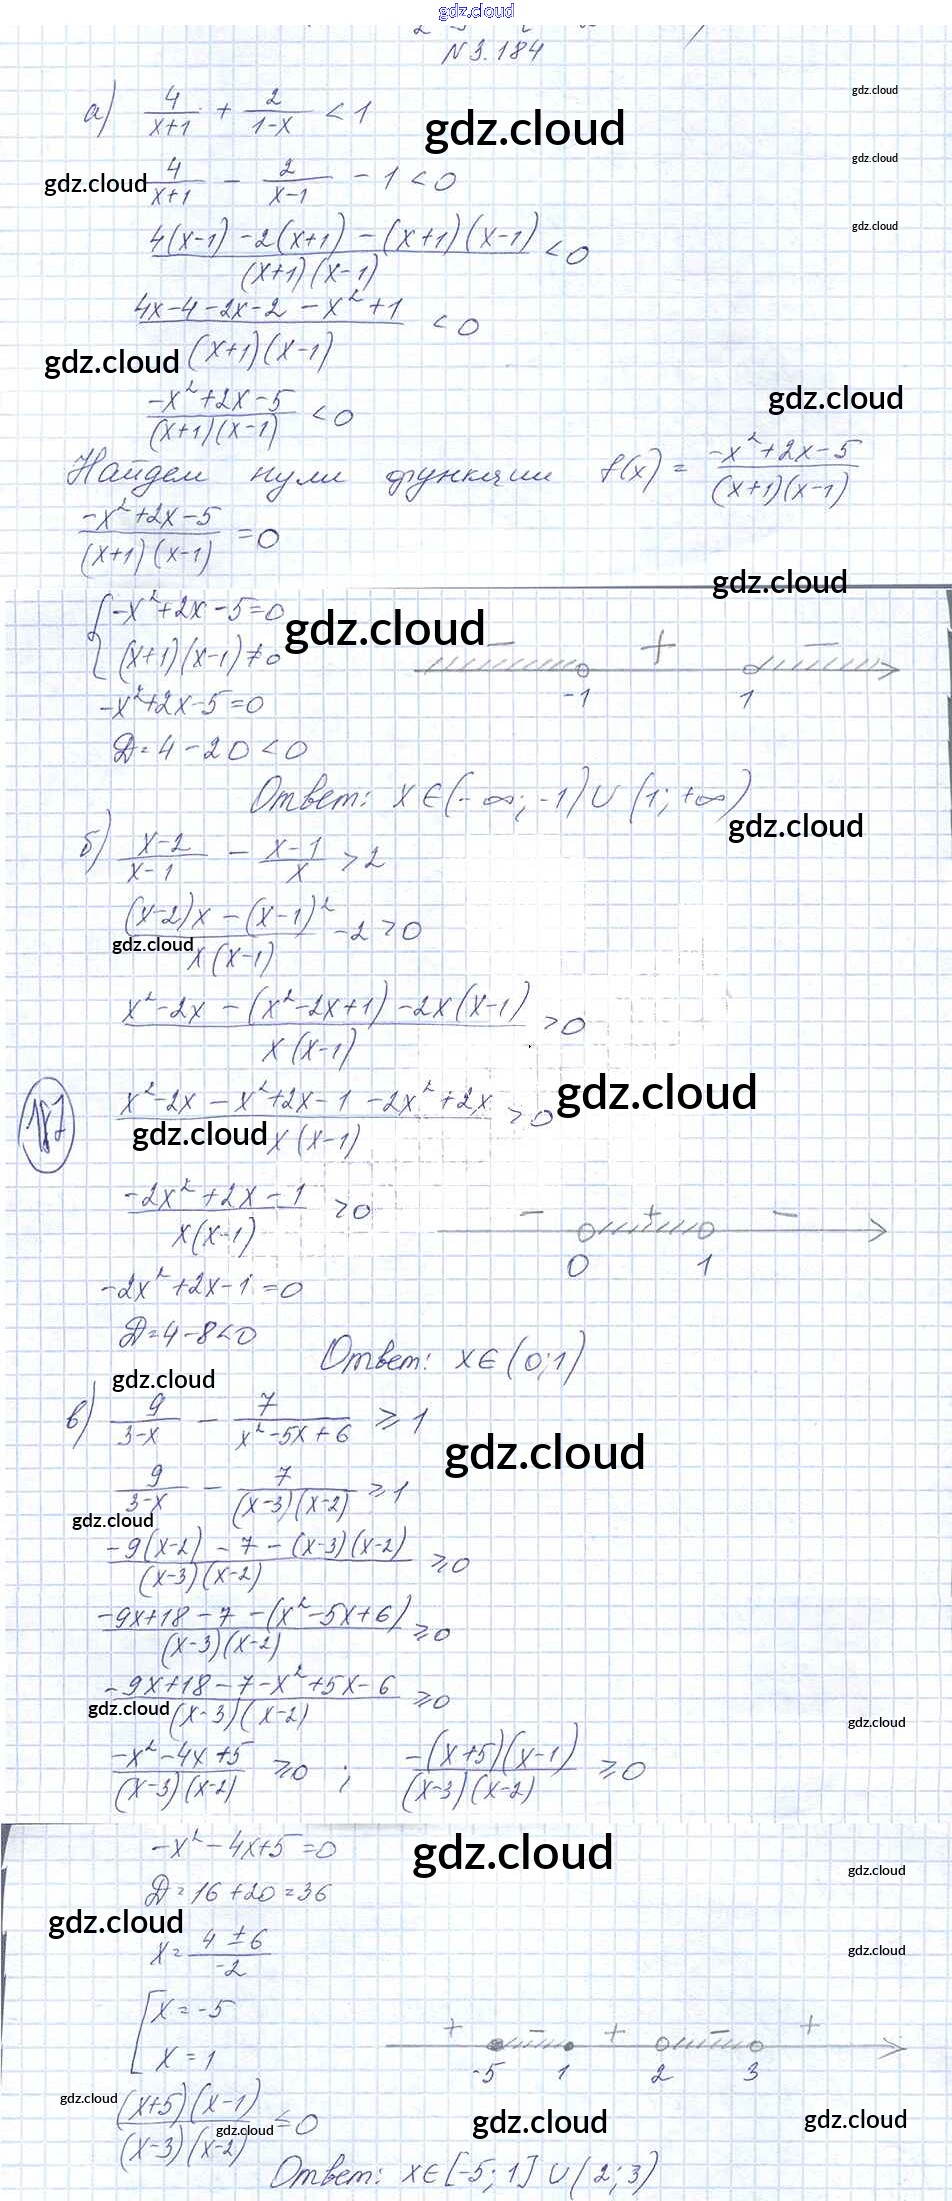 gdz.cloud
N 3.184
а) 4/(x+1) + 2/(1-x) < 1
gdz.cloud
gdz.cloud
4/(x+1) - 2/(x-1) - 1 < 0
gdz.cloud
gdz.cloud
(4(x-1) - 2(x+1) - (x+1)(x-1))/((x+1)(x-1)) < 0
gdz.cloud
(4x-4-2x-2-x²+1)/((x+1)(x-1)) < 0
gdz.cloud
(-x²+2x-5)/((x+1)(x-1)) < 0
gdz.cloud
Найдем нули функции f(x) = (-x²+2x-5)/((x+1)(x-1))
(-x²+2x-5)/((x+1)(x-1)) = 0
gdz.cloud
{ -x²+2x-5=0
(x+1)(x-1)≠0
gdz.cloud
- + -
-1 1
-x²+2x-5=0
Д=4-20<0
Ответ: x∈(-∞;-1)∪(1;+∞)
gdz.cloud
б) (x-2)/(x-1) - (x-1)/x > 2
((x-2)x-(x-1)²)/(x(x-1)) - 2 > 0
gdz.cloud
(x²-2x-(x²-2x+1)-2x(x-1))/(x(x-1)) > 0
gdz.cloud
187
(x²-2x-x²+2x-1-2x²+2x)/(x(x-1)) > 0
gdz.cloud
(-2x²+2x-1)/(x(x-1)) > 0
- + -
0 1
-2x²+2x-1=0
Д=4-8<0
Ответ: x∈(0;1)
gdz.cloud
в) 9/(3-x) - 7/(x²-5x+6) ≥ 1
gdz.cloud
9/(3-x) - 7/((x-3)(x-2)) ≥ 1
gdz.cloud
(-9(x-2)-7-(x-3)(x-2))/((x-3)(x-2)) ≥ 0
(-9x+18-7-(x²-5x+6))/((x-3)(x-2)) ≥ 0
(-9x+18-7-x²+5x-6)/((x-3)(x-2)) ≥ 0
gdz.cloud
gdz.cloud
(-x²-4x+5)/((x-3)(x-2)) ≥ 0 ; (-(x+5)(x-1))/((x-3)(x-2)) ≥ 0
-x²-4x+5=0
gdz.cloud
gdz.cloud
Д=16+20=36
gdz.cloud
x=(4±6)/(-2)
gdz.cloud
[ x=-5
x=1
+ - + - +
-5 1 2 3
gdz.cloud
((x+5)(x-1))/((x-3)(x-2)) ≤ 0
gdz.cloud
gdz.cloud
gdz.cloud
Ответ: x∈[-5;1]∪(2;3)